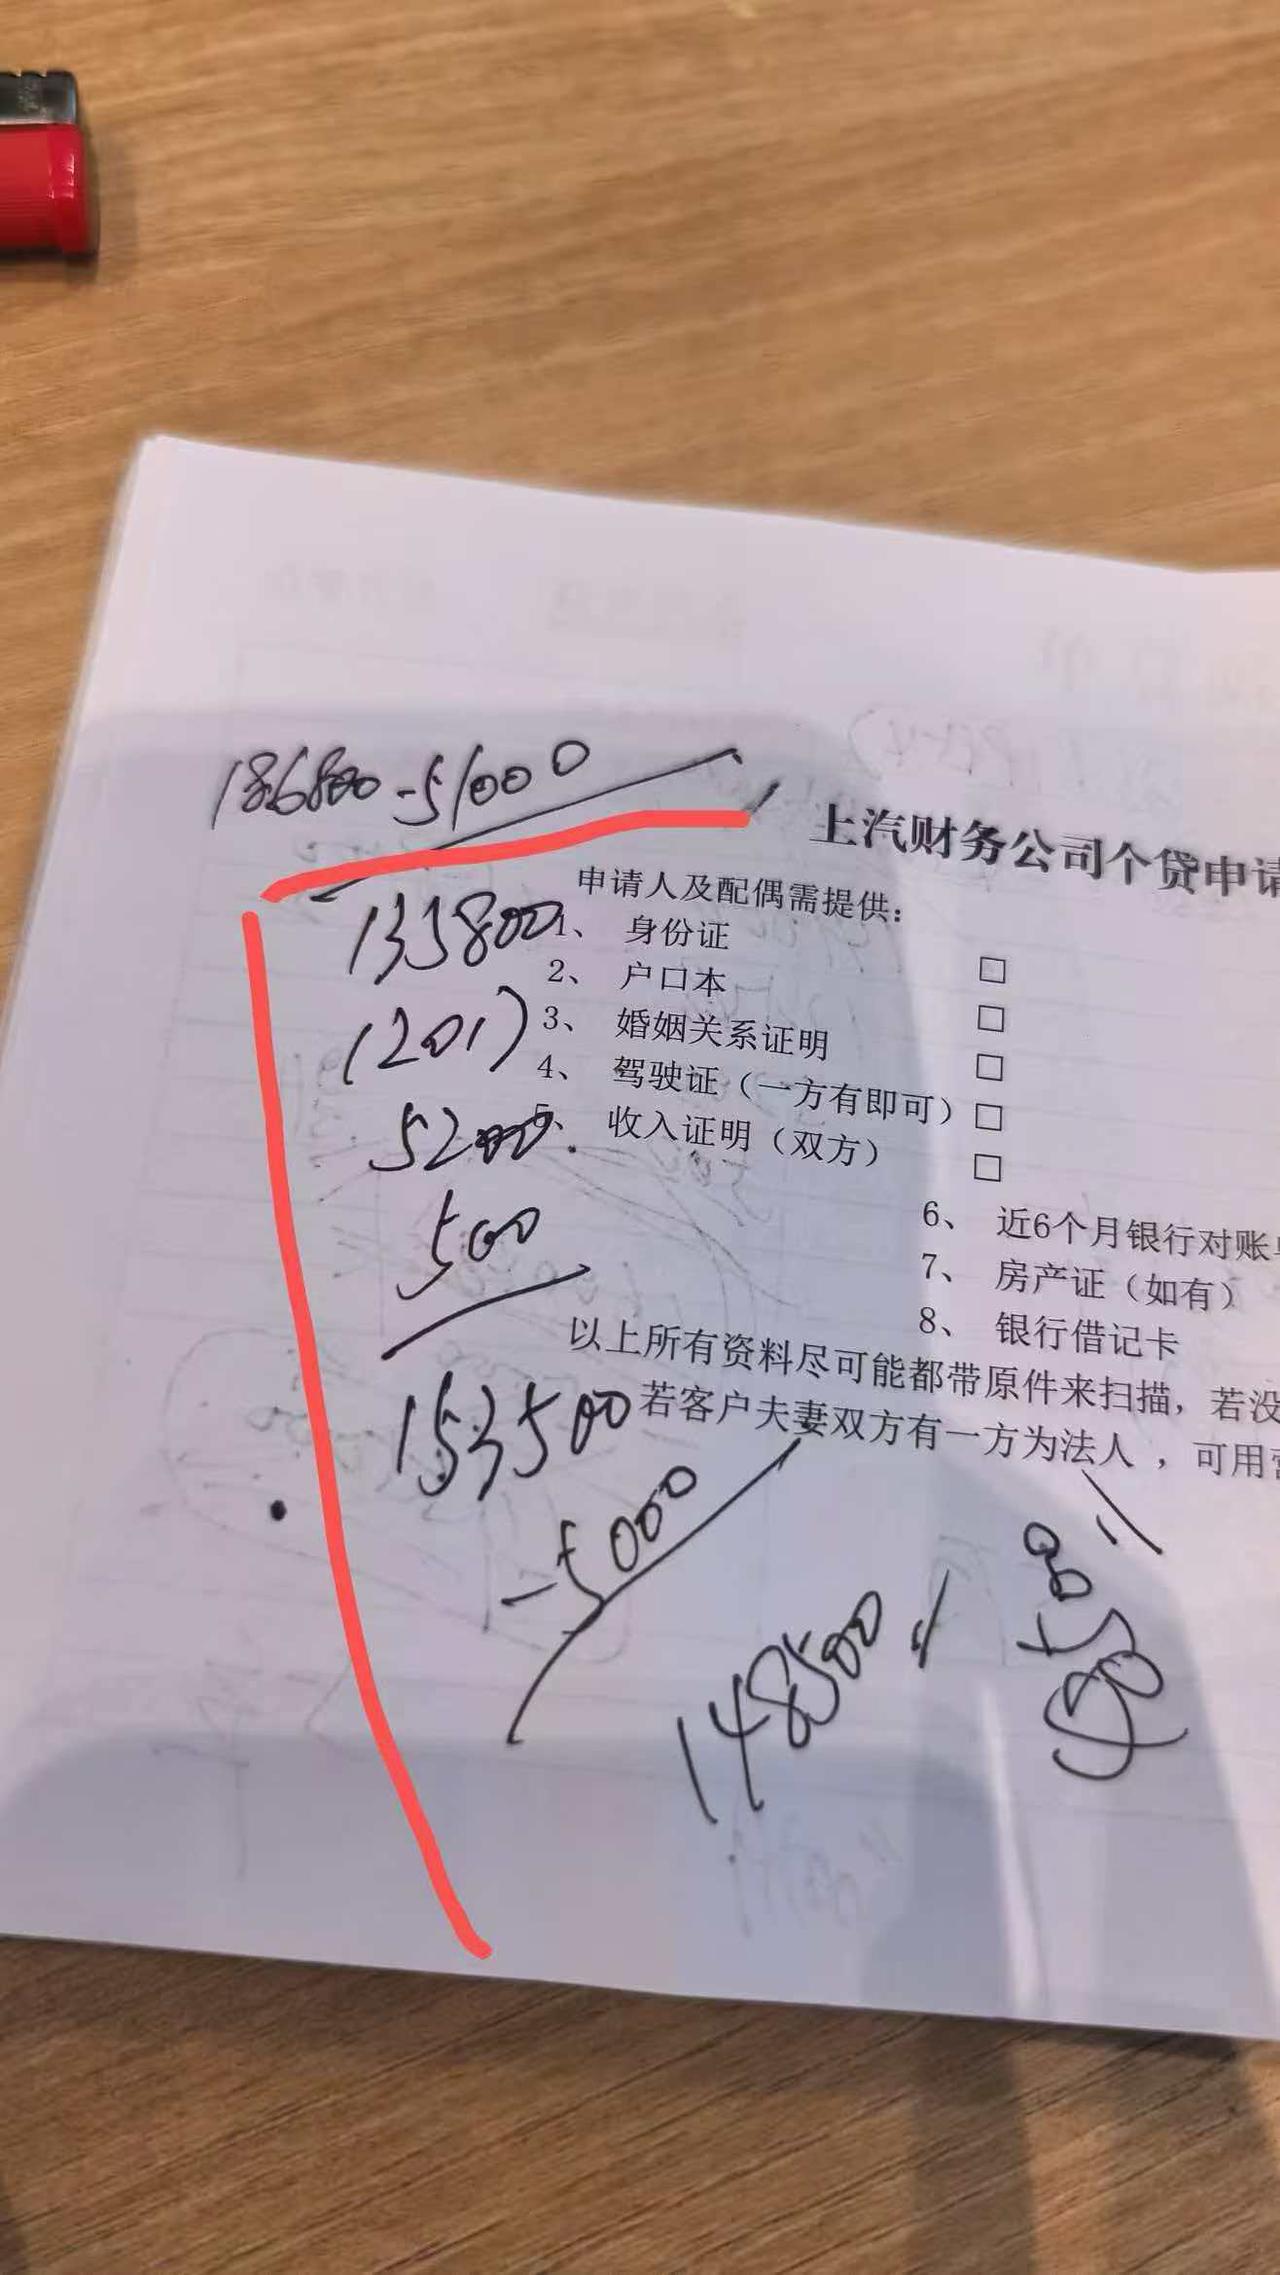 186800-51000
上汽财务公司个贷申请
申请人及配偶需提供：
135800
1、 身份证 □
2、 户口本 □
1201)
3、 婚姻关系证明 □
4、 驾驶证（一方有即可）□
5200.
5、 收入证明（双方） □
500
6、 近6个月银行对账单
7、 房产证（如有）
8、 银行借记卡
以上所有资料尽可能都带原件来扫描，若没
153500
若客户夫妻双方有一方为法人 ，可用营
-5000
148500